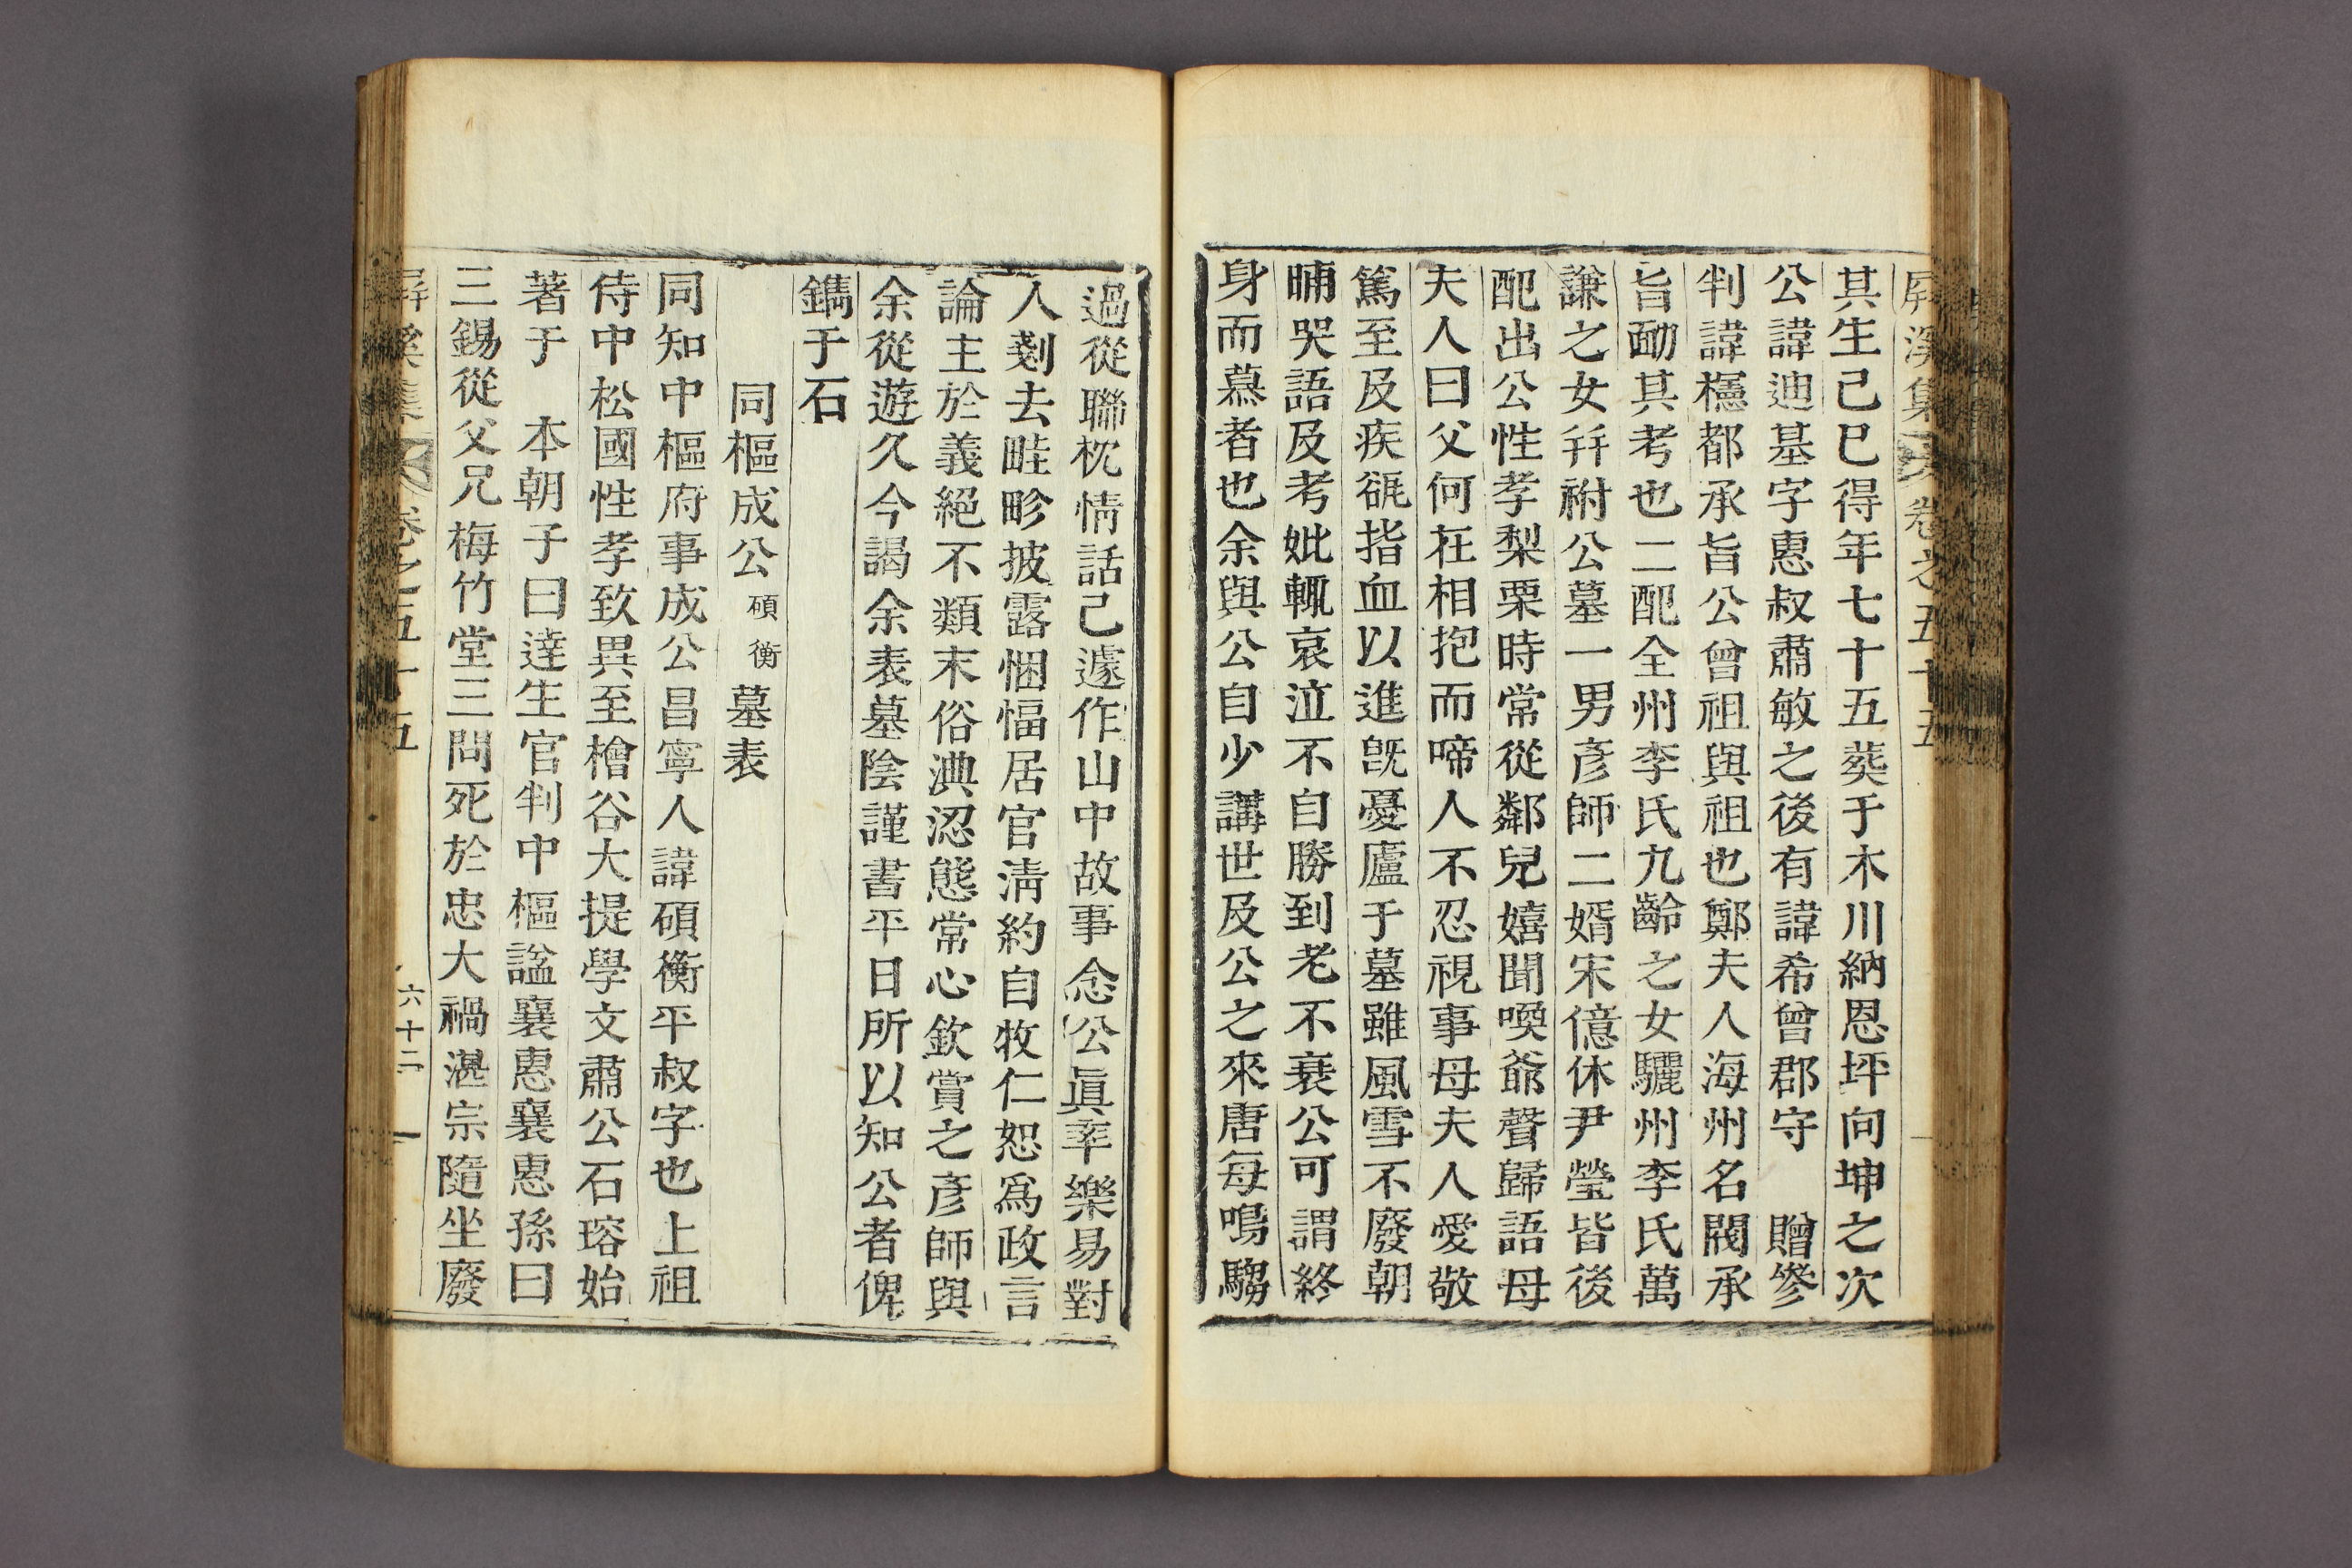 屛溪集 卷之五十五
其生己巳得年七十五葬于木川納恩坪向坤之次
公諱迪基字惠叔肅敏之後有諱希曾郡守 贈參
判諱櫶都承旨公曾祖與祖也鄭夫人海州名閥承
旨勔其考也二配全州李氏九齡之女驪州李氏萬
謙之女幷祔公墓一男彦師二婿宋億休尹瑩皆後
配出公性孝梨栗時常從鄰兒嬉聞喚爺聲歸語母
夫人曰父何在相抱而啼人不忍視事母夫人愛敬
篤至及疾㼝指血以進旣憂廬于墓雖風雪不廢朝
晡哭語及考妣輒哀泣不自勝到老不衰公可謂終
身而慕者也余與公自少講世及公之來唐每鳴騶
過從聯枕情話己遽作山中故事念公眞率樂易對
人剗去畦畛披露悃愊居官淸約自牧仁恕爲政言
論主於義絕不類末俗淟涊態常心欽賞之彦師與
余從遊久今謁余表墓陰謹書平日所以知公者俾
鐫于石
同樞成公 碩衡 墓表
同知中樞府事成公昌寧人諱碩衡平叔字也上祖
侍中松國性孝致異至檜谷大提學文肅公石瑢始
著于 本朝子曰達生官判中樞謚襄惠襄惠孫曰
三錫從父兄梅竹堂三問死於忠大禍湛宗隨坐廢
屛溪集 卷之五十五 六十二